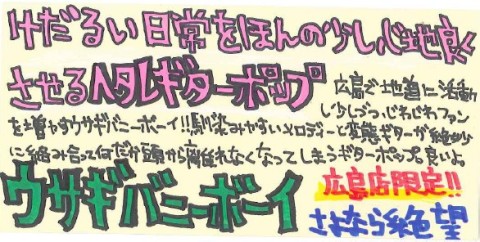 けだるい日常をほんの少し心地良く
させるヘタレギターポップ
広島で地道に活動
し少しづつ、じわじわファン
を増やすウサギバニーボーイ!!馴染みやすいメロディーと変態ギターが絶妙
に絡み合って何だか頭から離れなくなってしまうギターポップ。良いよ。
ウサギバニーボーイ
広島店限定!!
さよなら絶望